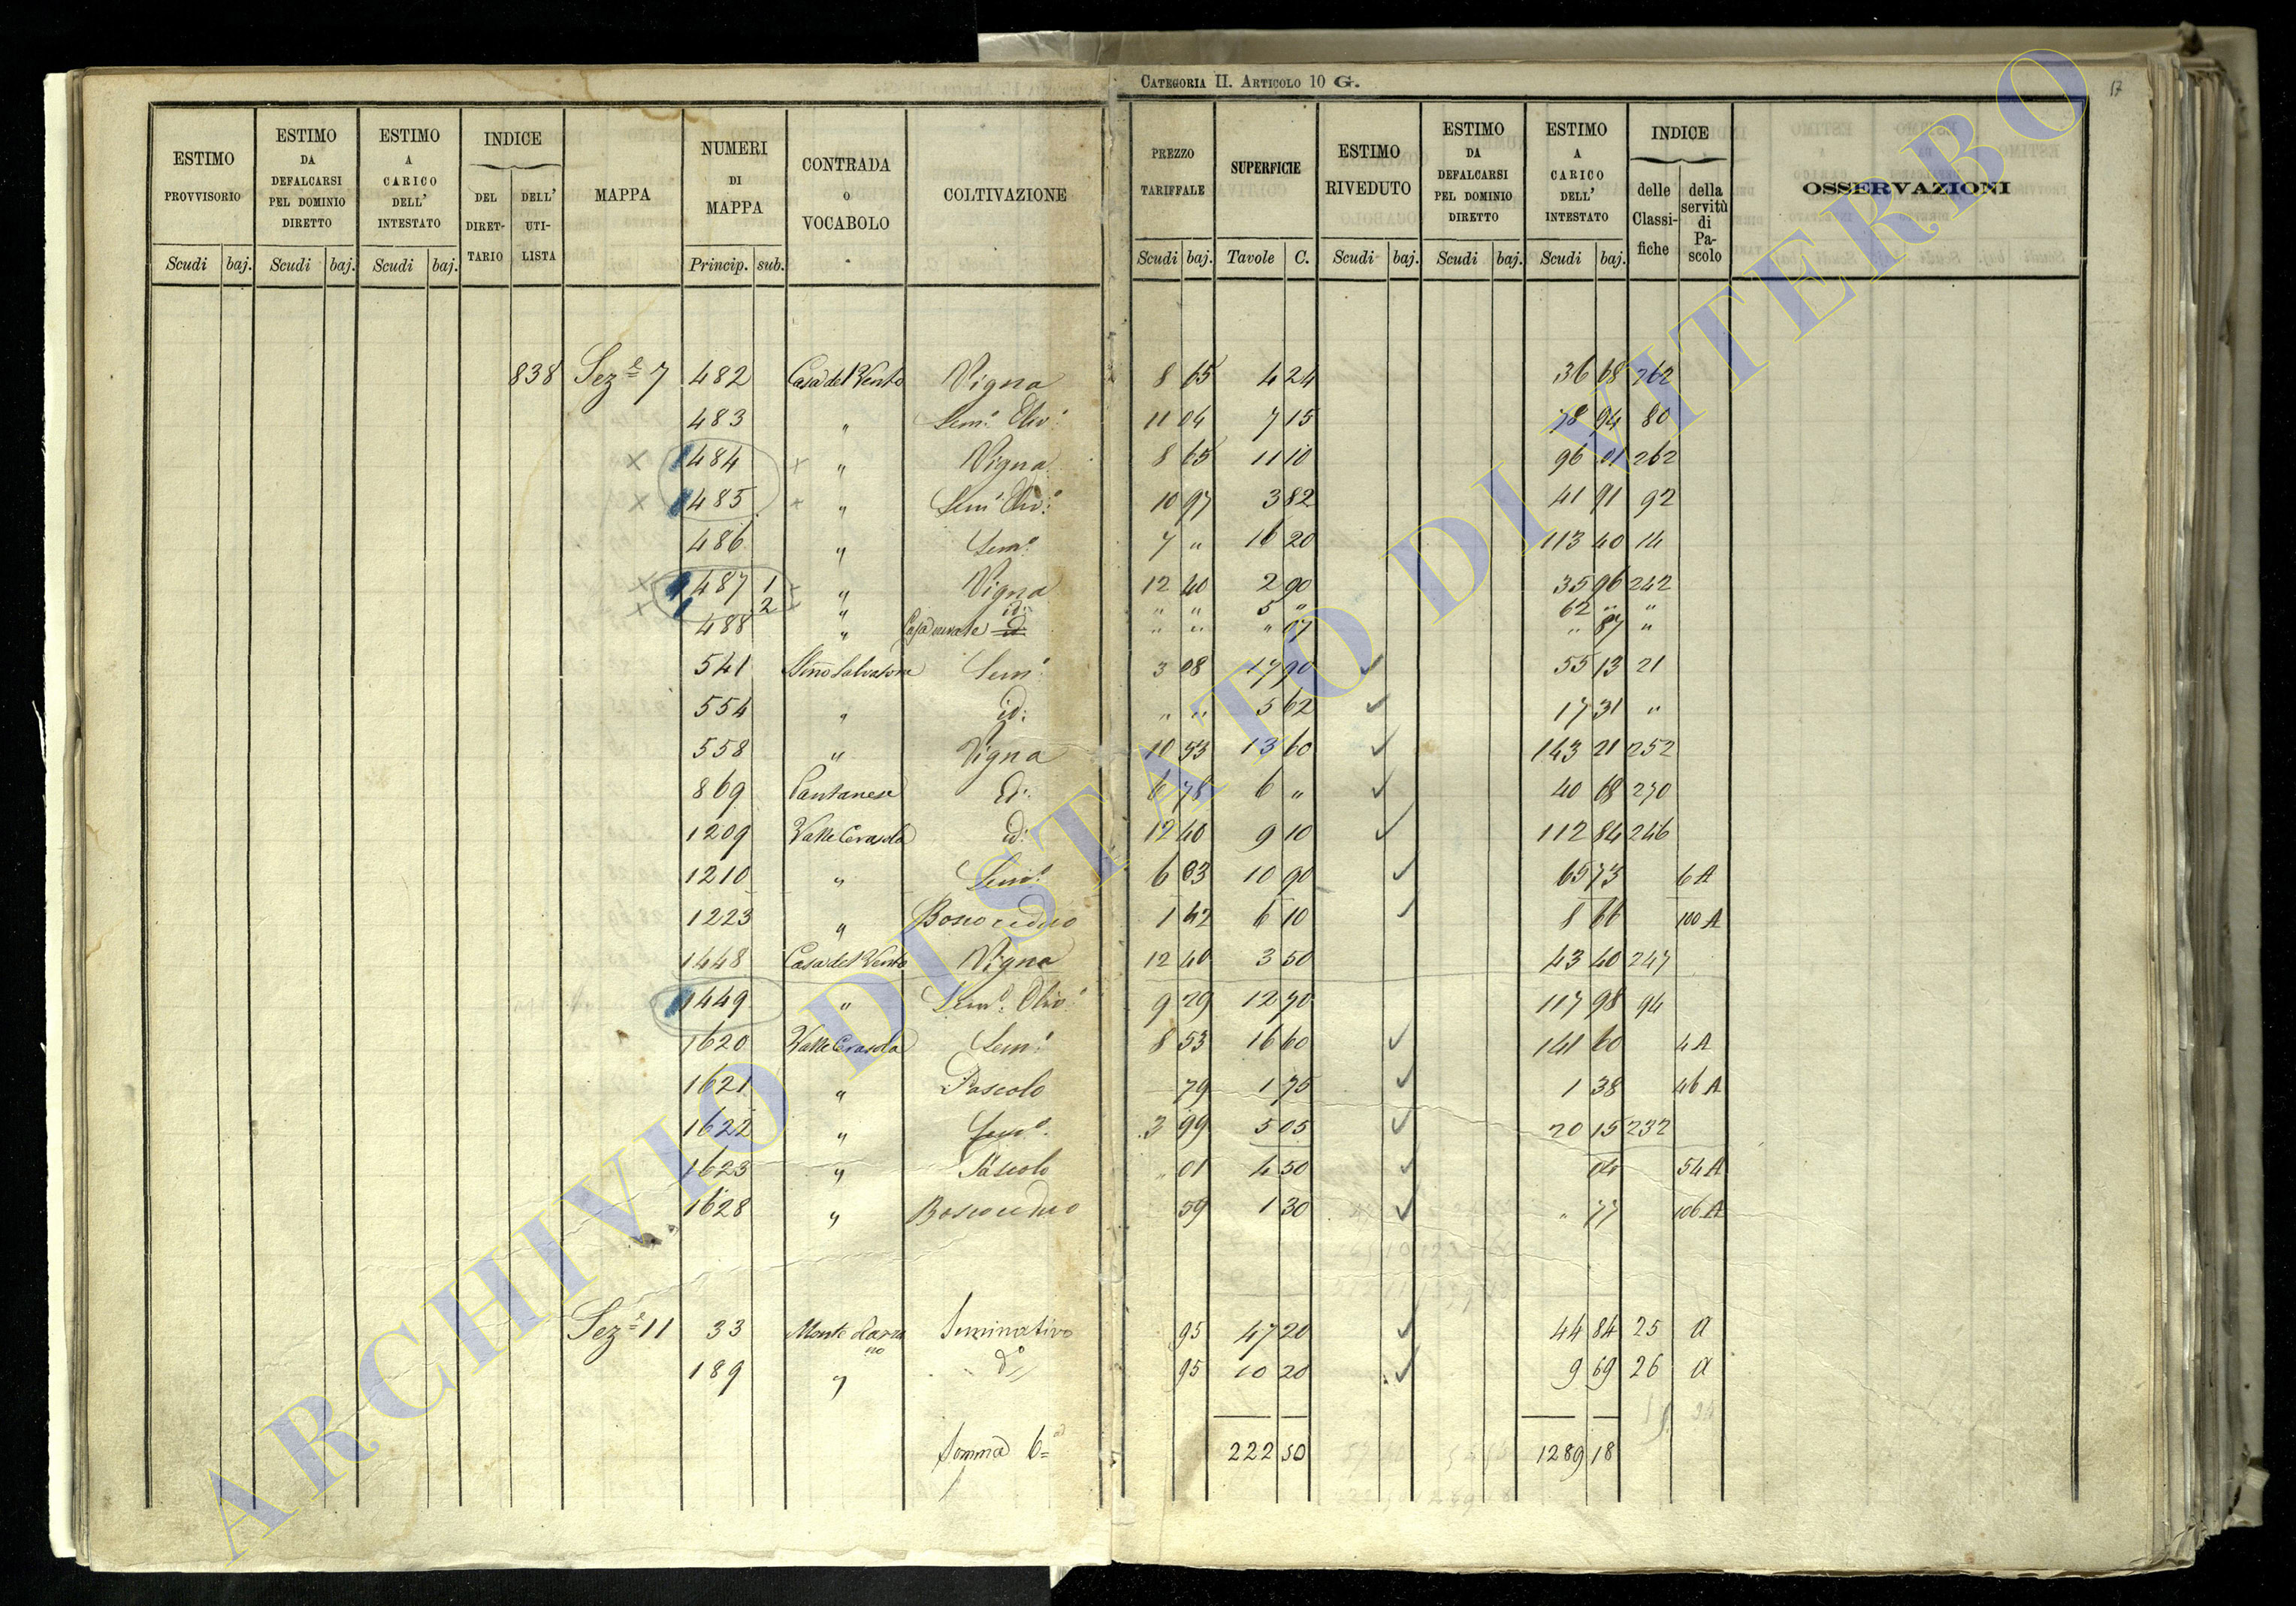 CATEGORIA II. ARTICOLO 10 G.
17
ESTIMO PROVVISORIO Scudi baj.
ESTIMO DA DEFALCARSI PEL DOMINIO DIRETTO Scudi baj.
ESTIMO A CARICO DELL' INTESTATO Scudi baj.
INDICE DEL DIRET-TARIO DELL' UTI-LISTA
MAPPA
NUMERI DI MAPPA Princip. sub.
CONTRADA O VOCABOLO
COLTIVAZIONE
PREZZO TARIFFALE Scudi baj.
SUPERFICIE Tavole C.
ESTIMO RIVEDUTO Scudi baj.
ESTIMO DA DEFALCARSI PEL DOMINIO DIRETTO Scudi baj.
ESTIMO A CARICO DELL' INTESTATO Scudi baj.
INDICE delle Classi-fiche della servitù di Pa-scolo
OSSERVAZIONI
838 Sez.e 7 482 Casa del Vento Vigna 8 65 4 24 36 68 262
483 " Sem.o Oliv.o 11 04 7 15 78 94 80
484 " Vigna 8 65 11 10 96 01 262
485 " Sem.o Oliv.o 10 97 3 82 41 91 92
486 " Sem.o 7 " 16 20 113 40 14
487 1 " Vigna 12 40 2 90 35 96 242
2 " id: " " 5 " 62 " "
488 " Casa rurale " " " 07 " 87 "
541 Salvatore Sem.o 3 08 17 90 ✓ 55 13 21
554 " id: " " 5 62 ✓ 17 31 "
558 " Vigna 10 53 13 60 ✓ 143 21 252
869 Pantanese Id: 6 78 6 " ✓ 40 68 270
1209 Valle Cerasola id: 12 40 9 10 ✓ 112 84 246
1210 " Sem.o 6 03 10 90 ✓ 65 73 6 A
1223 " Bosco ceduo 1 42 6 10 ✓ 8 66 100 A
1448 Casa del Vento Vigna 12 40 3 50 43 40 247
1449 " Sem.o Oliv.o 9 29 12 70 117 98 94
1620 Valle Cerasola Sem.o 8 53 16 60 ✓ 141 60 4 A
1621 " Pascolo 79 1 75 ✓ 1 38 46 A
1622 " Sem.o 3 99 5 05 ✓ 20 15 232
1623 " Pascolo " 01 4 50 ✓ 04 54 A
1628 " Bosco ceduo 59 1 30 ✓ " 77 106 A
Sez.e 11 33 Monte Seminativo 95 47 20 ✓ 44 84 25 A
189 " d.o 95 10 20 ✓ 9 69 26 A
Somma 222 50 1289 18
ARCHIVIO DI STATO DI VITERBO